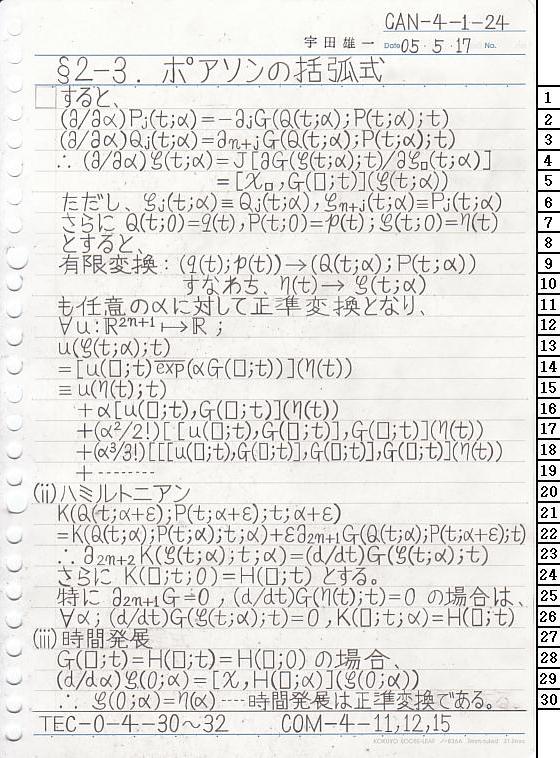 CAN-4-1-24
宇田雄一 Date 05・5・17 No.
§2-3. ポアソンの括弧式
□ すると、
(∂/∂α)Pⱼ(t;α)=-∂ⱼG(Q(t;α);P(t;α);t)
(∂/∂α)Qⱼ(t;α)=∂ₙ₊ⱼG(Q(t;α);P(t;α);t)
∴ (∂/∂α)ξ(t;α)=J[∂G(ξ(t;α);t)/∂ξ□(t;α)]
=[χ□,G(□;t)](ξ(t;α))
ただし、ξⱼ(t;α)≡Qⱼ(t;α),ξₙ₊ⱼ(t;α)≡Pⱼ(t;α)
さらに Q(t;0)=q(t),P(t;0)=p(t);ξ(t;0)=η(t)
とすると、
有限変換:(q(t);p(t))→(Q(t;α);P(t;α))
すなわち、η(t)→ξ(t;α)
も任意のαに対して正準変換となり、
∀u:ℝ²ⁿ⁺¹↦ℝ;
u(ξ(t;α);t)
=[u(□;t)e̅x̅p̅(αG(□;t))](η(t))
≡u(η(t);t)
+α[u(□;t),G(□;t)](η(t))
+(α²/2!)[[u(□;t),G(□;t)],G(□;t)](η(t))
+(α³/3!)[[[u(□;t),G(□;t)],G(□;t)],G(□;t)](η(t))
+--------
(ii)ハミルトニアン
K(Q(t;α+ε);P(t;α+ε);t;α+ε)
=K(Q(t;α);P(t;α);t;α)+ε∂₂ₙ₊₁G(Q(t;α);P(t;α+ε);t)
∴ ∂₂ₙ₊₂K(ξ(t;α);t;α)=(d/dt)G(ξ(t;α);t)
さらに K(□;t;0)=H(□;t) とする。
特に ∂₂ₙ₊₁G≐0,(d/dt)G(η(t);t)=0 の場合は、
∀α;(d/dt)G(ξ(t;α);t)=0,K(□;t;α)=H(□;t)
(iii)時間発展
G(□;t)=H(□;t)=H(□;0) の場合、
(d/dα)ξ(0;α)=[χ,H(□;α)](ξ(0;α))
∴ ξ(0;α)=η(α)----時間発展は正準変換である。
TEC-0-4-30~32 COM-4-11,12,15
1
2
3
4
5
6
7
8
9
10
11
12
13
14
15
16
17
18
19
20
21
22
23
24
25
26
27
28
29
30